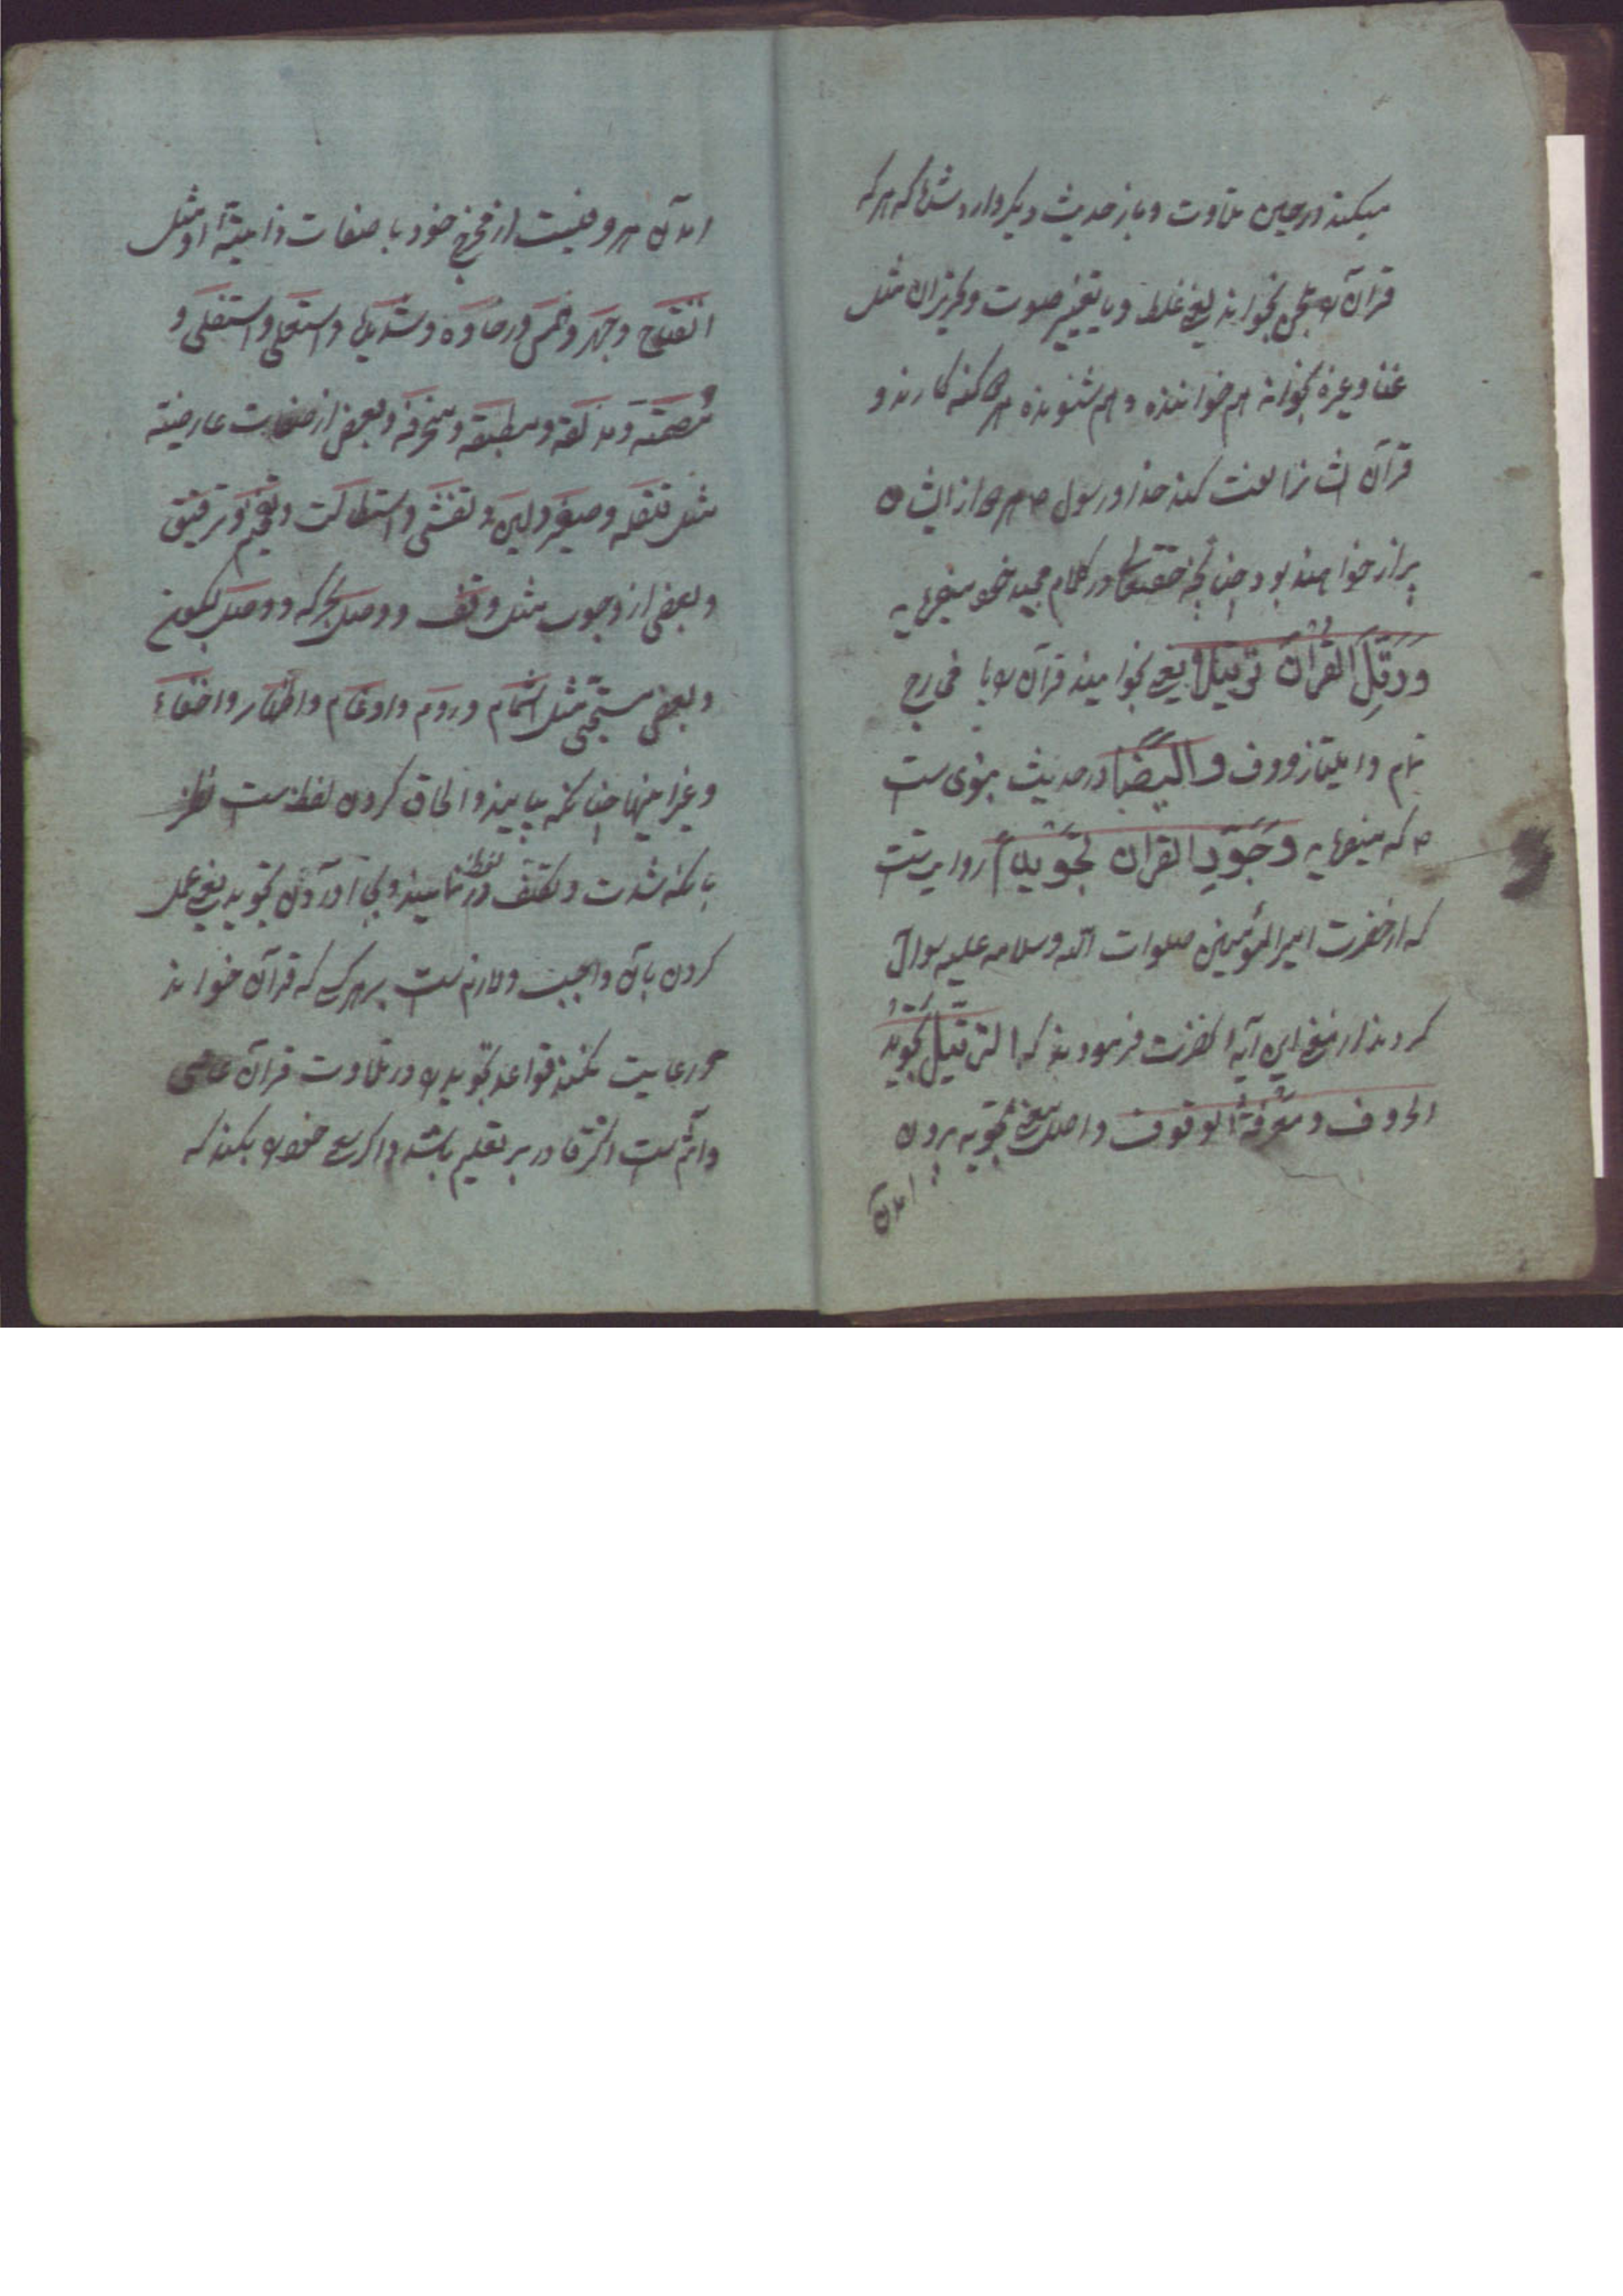 میکند در حین تلاوت و باز حدیث دیکر وارد شده که هر که
قرآن را بلحن بخواند یعنی غلط و یا بتغییر صوت و لرزان مثل
غنا و غیره بخواند هم خواننده و هم شنونده هر دو کنه کارند و
قرآن ایشانرا لعنت کند خدا و رسول ص هر دو از ایشان
بیزار خواهند بود چنانچه حقتعالی در کلام مجید خود میفرماید
وَرَتِّلِ القُرْآنَ تَرْتِیلاً یعنی بخوانید قرآن را با مخارج
تمام و امتیاز حروف و ایضاً در حدیث نبوی ست
ص که میفرماید وَجَوِّدِ القرآن تَجْوِیداً روایت ست
که از حضرت امیر المؤمنین صلوات الله وسلامه علیه سوال
کردند از معنی این آیه انحضرت فرمودند که الترتیل تجوید
الحروف و معرفة الوقوف و اصل معنی تجوید بیرون
امدن
امدن هر حرفیست از مخرج خود با صفات ذاتیهٔ او مثل
انفتاح و جهر و همس و رخاوه و شدیده و استعلی و استفلی و
مُصمته و مذلقه و مطبقه و منحرفه و بعضی از صفات عارضیته
مثل قلقله و صفیر و لین و تفشی و استطالت و تفخیم و ترقیق
و بعضی از وجوب مثل وقف و وصل بحرکه و وصل بسکون
و بعضی مستحبی مثل اشمام و روم و ادغام و اظهار و اخفاء
و غیر اینها چنانکه بیاید و الحاق کردن لفظ ست نظیر
بانکه شدت و تکلف در لفظ نمایند و بجا آوردن تجوید یعنی عمل
کردن بآن واجبب و لازم ست بر هر کسی که قرآن خواند
و رعایت نکند قواعد تجوید را در تلاوت قرآن عاصی
و آثم ست اکر قادر بر تعلیم باشد و اکر سعی خود را بکند که